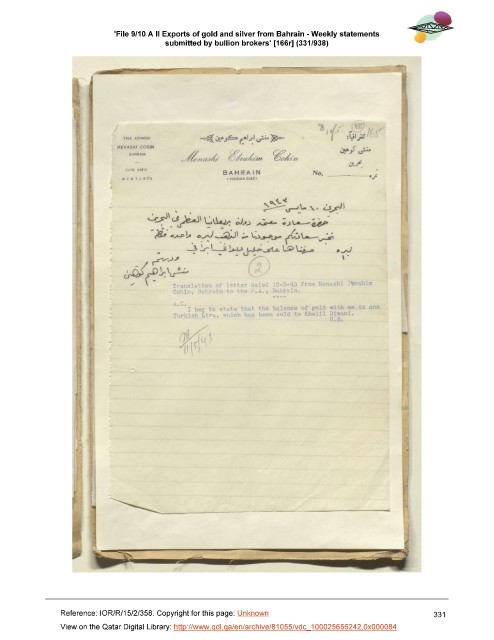 'File 9/10 A II Exports of gold and silver from Bahrain - Weekly statements
submitted by bullion brokers' [166r] (331/938)
TELE. ADDRESS
MENASHI COHIN
BAHRAIN
منشى ابراهيم كوهين
Menashi Ebrahim Cohin
BAHRAIN
(PERSIAN GULF)
تلغرافياً:
منشى كوهين
بحرين
No.
نمره
البحرين ١٠ مايس ١٩٤٣
حضرة سعادة معتمد دولة بريطانيا العظمى في البحرين
نخبر سعادتكم موجودنا من الذهب ليره واحده فقط
ليره
منشى ابراهيم كوهين
2
Translation of letter dated 10-5-43 from Menashi Ebrahim
Cohin, Bahrain to the P.A., Bahrain.
----
A.C.
I beg to state that the balance of gold with me is one
Turkish Lira, which has been sold to Khalil Diwani.
U.E.
11/5/43
Reference: IOR/R/15/2/358. Copyright for this page: Unknown
331
View on the Qatar Digital Library: http://www.qdl.qa/en/archive/81055/vdc_100025656242.0x000084